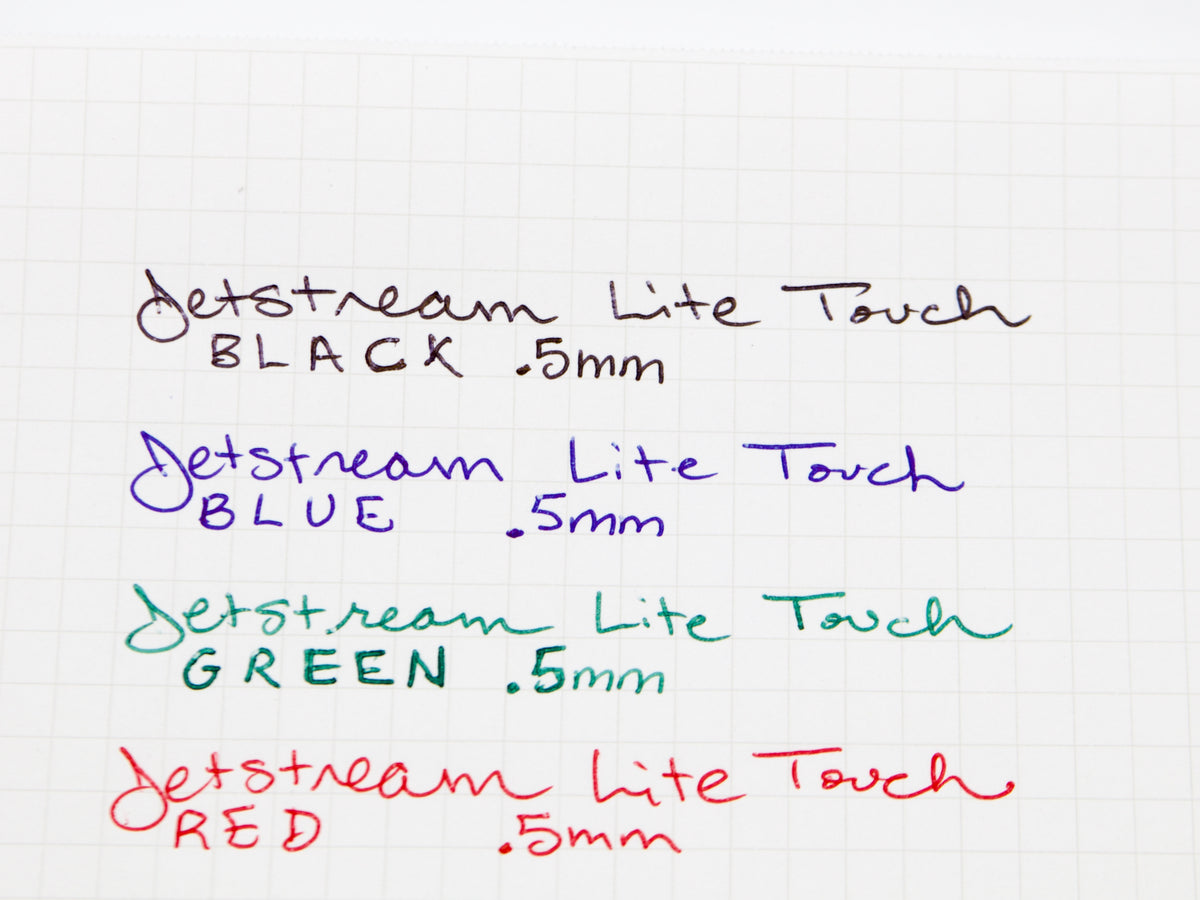 Jetstream Lite Touch
BLACK .5mm
Jetstream Lite Touch
BLUE .5mm
Jetstream Lite Touch
GREEN .5mm
Jetstream Lite Touch
RED .5mm